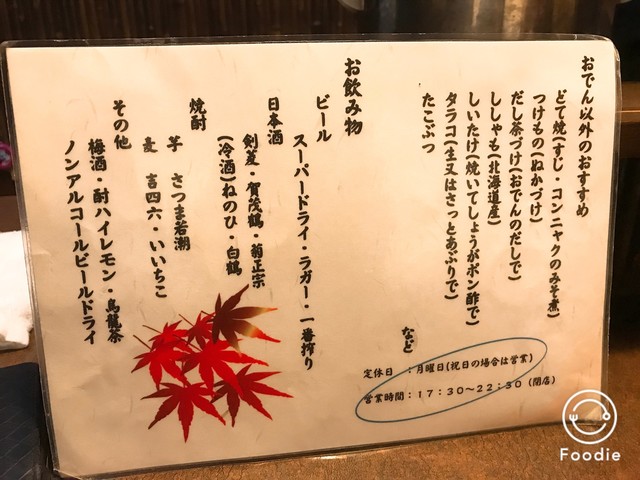 おでん以外のおすすめ
どて焼(すじ・コンニャクのみそ煮)
つけもの(ぬかづけ)
だし茶づけ(おでんのだしで)
ししゃも(北海道産)
しいたけ(焼いてしょうがポン酢で)
タラコ(生又はさっとあぶりで)
たこぶつ
など
定休日　：月曜日(祝日の場合は営業)
営業時間：17：30～22：30(閉店)
お飲み物
ビール
スーパードライ・ラガー・一番搾り
日本酒
剣菱・賀茂鶴・菊正宗
(冷酒)ねのひ・白鶴
焼酎
芋　さつま若潮
麦　吉四六・いいちこ
その他
梅酒・酎ハイレモン・烏龍茶
ノンアルコールビールドライ
Foodie